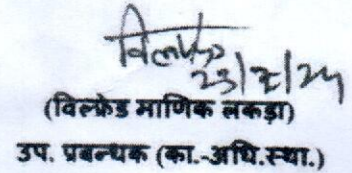 विल्फ्रेड
(विल्फ्रेड माणिक लकड़ा)
उप. प्रबन्धक (का.-अधि.स्था.)